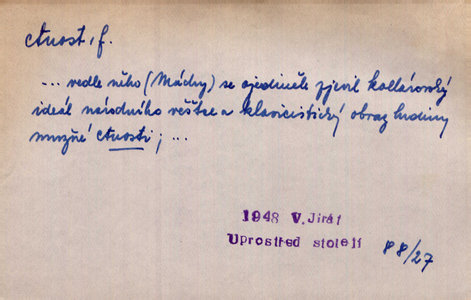 ctnost, f.
... vedle něho (Máchy) se ojediněle zjevil kollárovský
ideál národního věštce a klasicistický obraz hrdiny
mužné ctnosti; ...
1948 V. Jirát
Uprostřed století
88/27